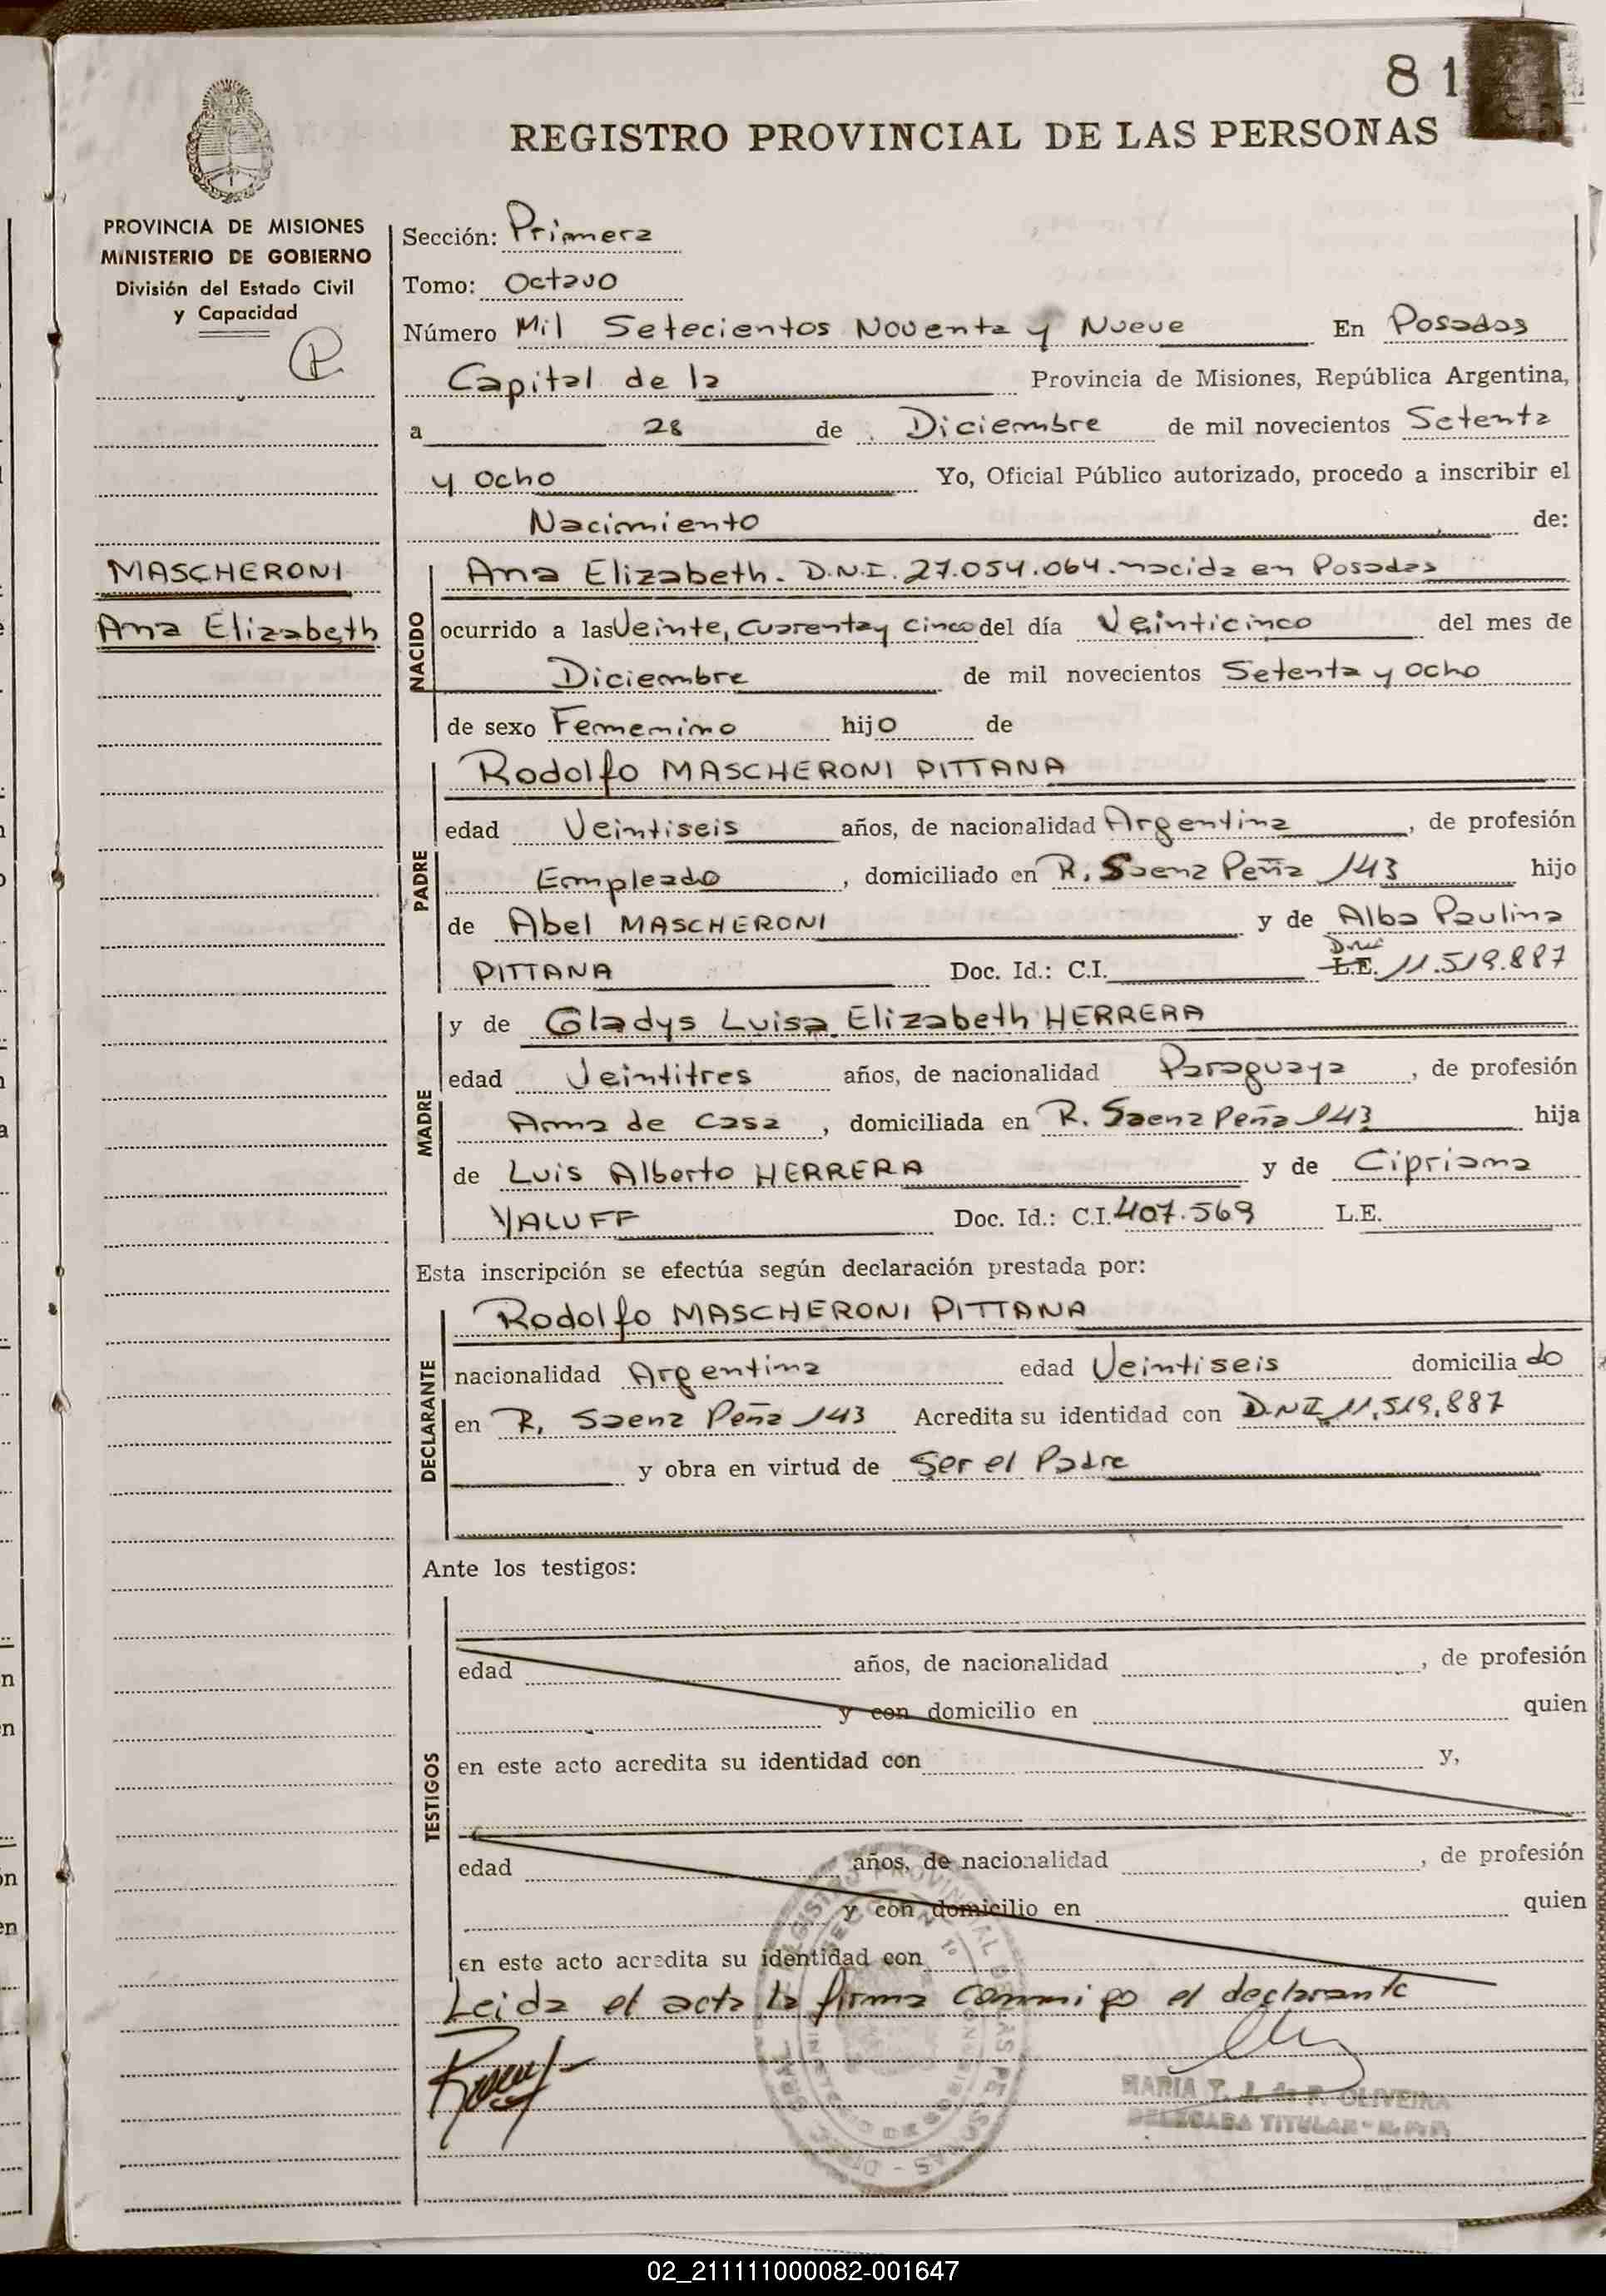 81
REGISTRO PROVINCIAL DE LAS PERSONAS
PROVINCIA DE MISIONES
MINISTERIO DE GOBIERNO
División del Estado Civil
y Capacidad
Sección: Primera
Tomo: Octavo
Número Mil Setecientos Noventa y Nueve En Posadas
Capital de la Provincia de Misiones, República Argentina,
a 28 de Diciembre de mil novecientos Setenta
y Ocho Yo, Oficial Público autorizado, procedo a inscribir el
Nacimiento de:
MASCHERONI
Ana Elizabeth
NACIDO
Ana Elizabeth. D.N.I. 27.054.064. nacida en Posadas
ocurrido a las Veinte, Cuarenta y Cinco del día Veinticinco del mes de
Diciembre de mil novecientos Setenta y Ocho
de sexo Femenino hijo de
PADRE
Rodolfo MASCHERONI PITTANA
edad Veintiseis años, de nacionalidad Argentina, de profesión
Empleado, domiciliado en R. Saenz Peña 143 hijo
de Abel MASCHERONI y de Alba Paulina
PITTANA Doc. Id.: C.I. L.E. Dni 11.519.887
MADRE
y de Gladys Luisa Elizabeth HERRERA
edad Veintitres años, de nacionalidad Paraguaya, de profesión
Ama de Casa, domiciliada en R. Saenz Peña 143 hija
de Luis Alberto HERRERA y de Cipriana
YALUFF Doc. Id.: C.I. 407.569 L.E.
Esta inscripción se efectúa según declaración prestada por:
DECLARANTE
Rodolfo MASCHERONI PITTANA
nacionalidad Argentina edad Veintiseis domiciliado
en R. Saenz Peña 143 Acredita su identidad con D.N.I. 11.519.887
y obra en virtud de Ser el Padre
Ante los testigos:
TESTIGOS
edad años, de nacionalidad , de profesión
y con domicilio en quien
en este acto acredita su identidad con y,
edad años, de nacionalidad , de profesión
y con domicilio en quien
en este acto acredita su identidad con
Leida el acta la firma conmigo el declarante
MARIA T. J. de F. OLIVEIRA
DELEGADA TITULAR - R.P.P.
02_211111000082-001647